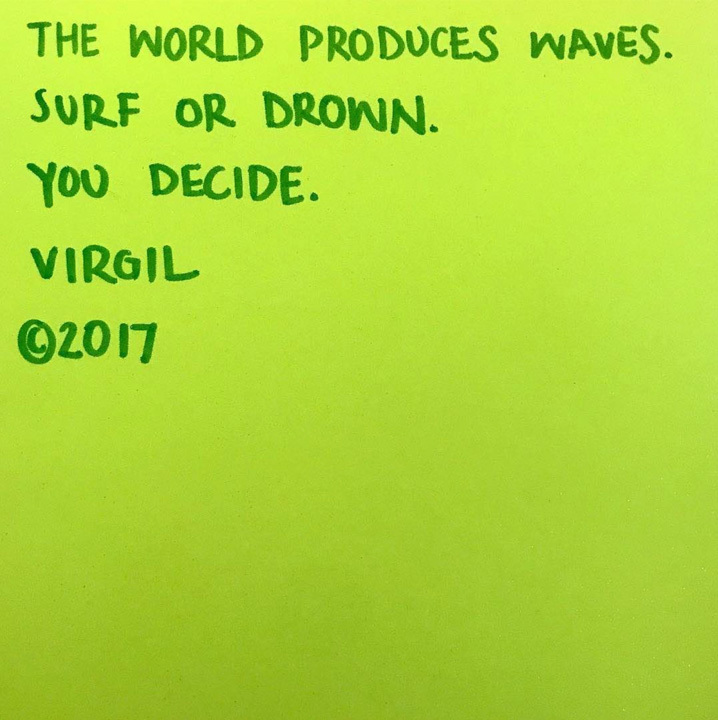 THE WORLD PRODUCES WAVES.
SURF OR DROWN.
YOU DECIDE.
VIRGIL
©2017